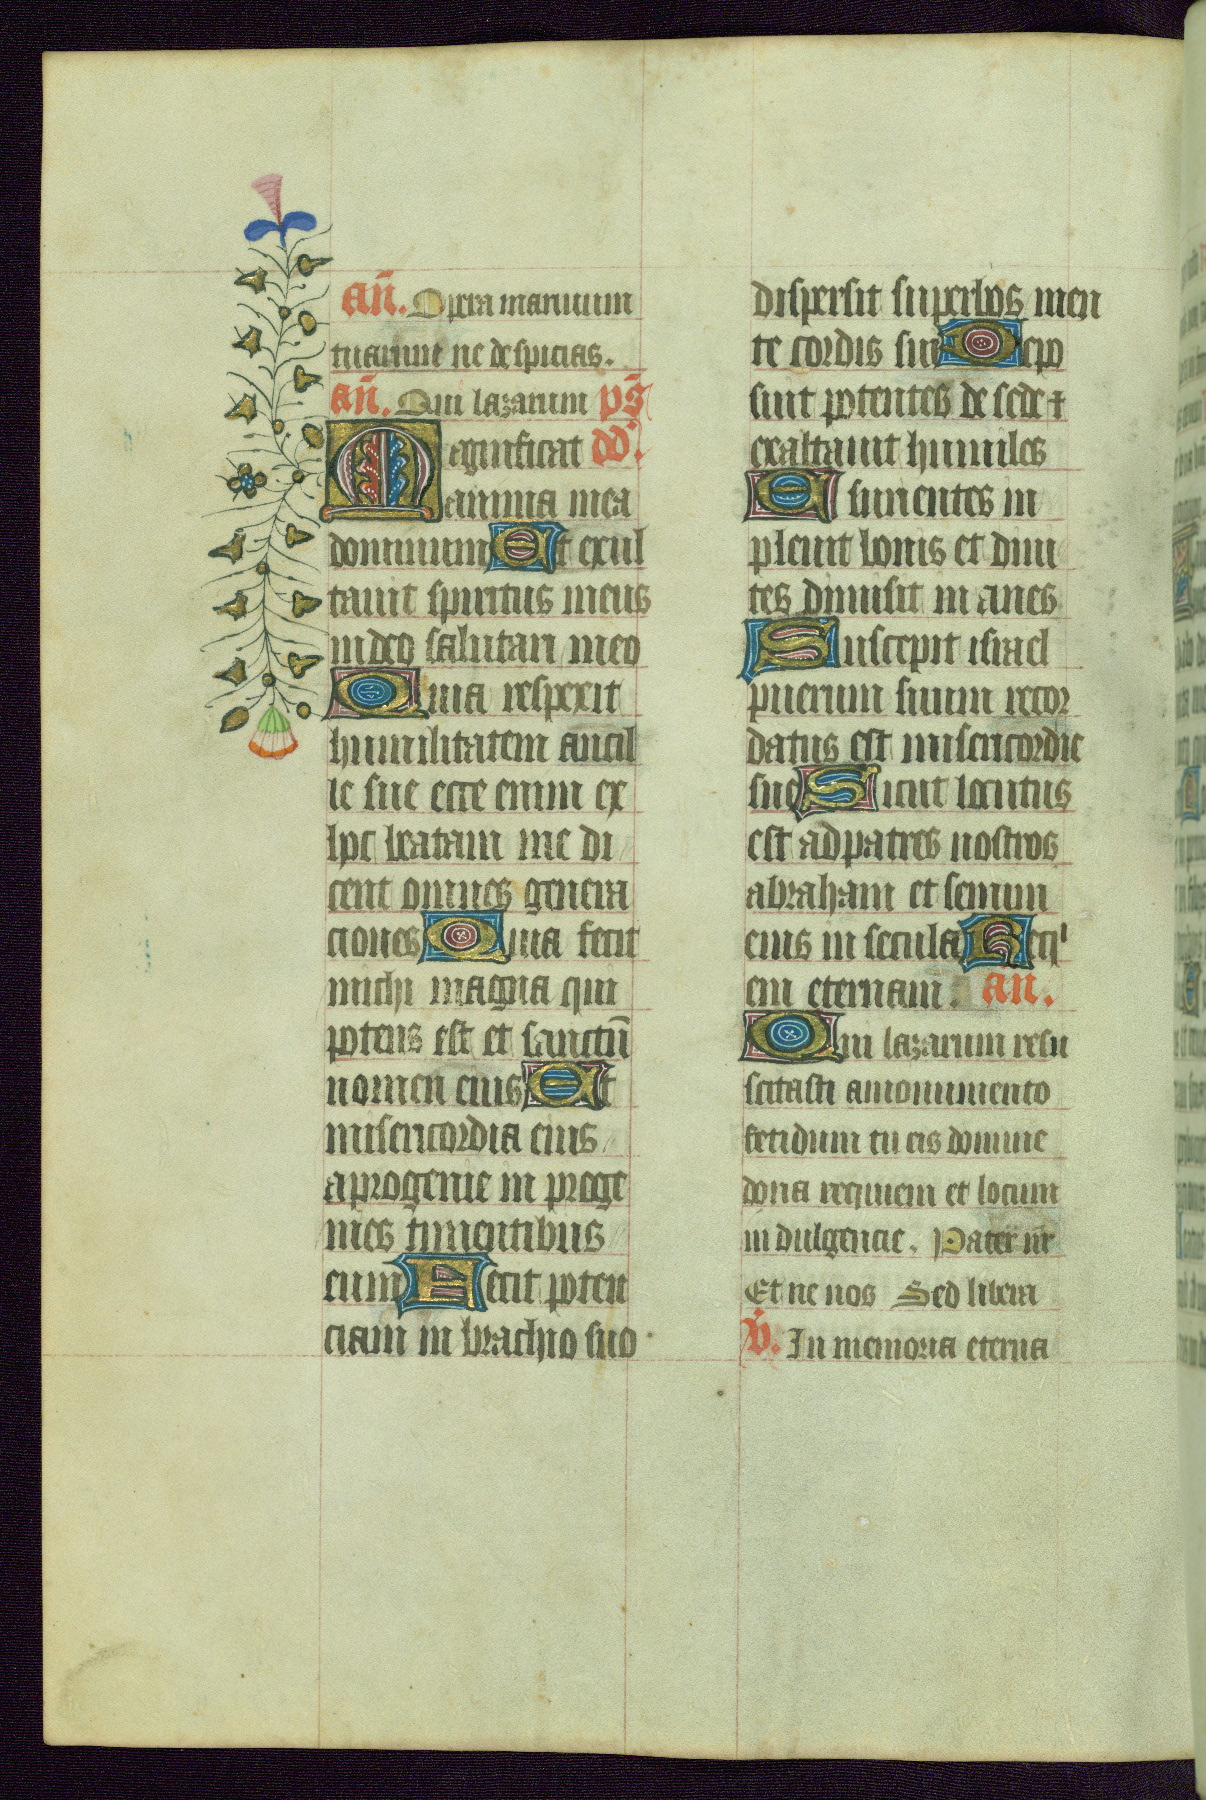 an̄. Opera manuum
tuarum ne despicias.
an̄. Qui lazarum ps̄
Magnificat dd'.
anima mea
dominum Et exul
tauit spiritus meus
in deo salutari meo
Quia respexit
humilitatem ancil
le sue ecce enim ex
hoc beatam me di
cent omnes genera
ciones Quia fecit
michi magna qui
potens est et sanctū
nomen eius Et
misericordia eius
a progenie in proge
nies timentibus
eum Fecit poten
ciam in brachio suo
dispersit superbos men
te cordis sui Depo
suit potentes de sede ⁊
exaltauit humiles
Esurientes in
pleuit bonis et diui
tes dimisit in anes
Suscepit israel
puerum suum recor
datus est misericordie
sue Sicut locutus
est ad patres nostros
abraham et semini
eius in secula Requi
em eternam. an.
Qui lazarum resu
scitasti a monumento
fetidum tu eis domine
dona requiem et locum
in dulgencie. Pater nr̄
Et ne nos Sed libera
v̄. In memoria eterna